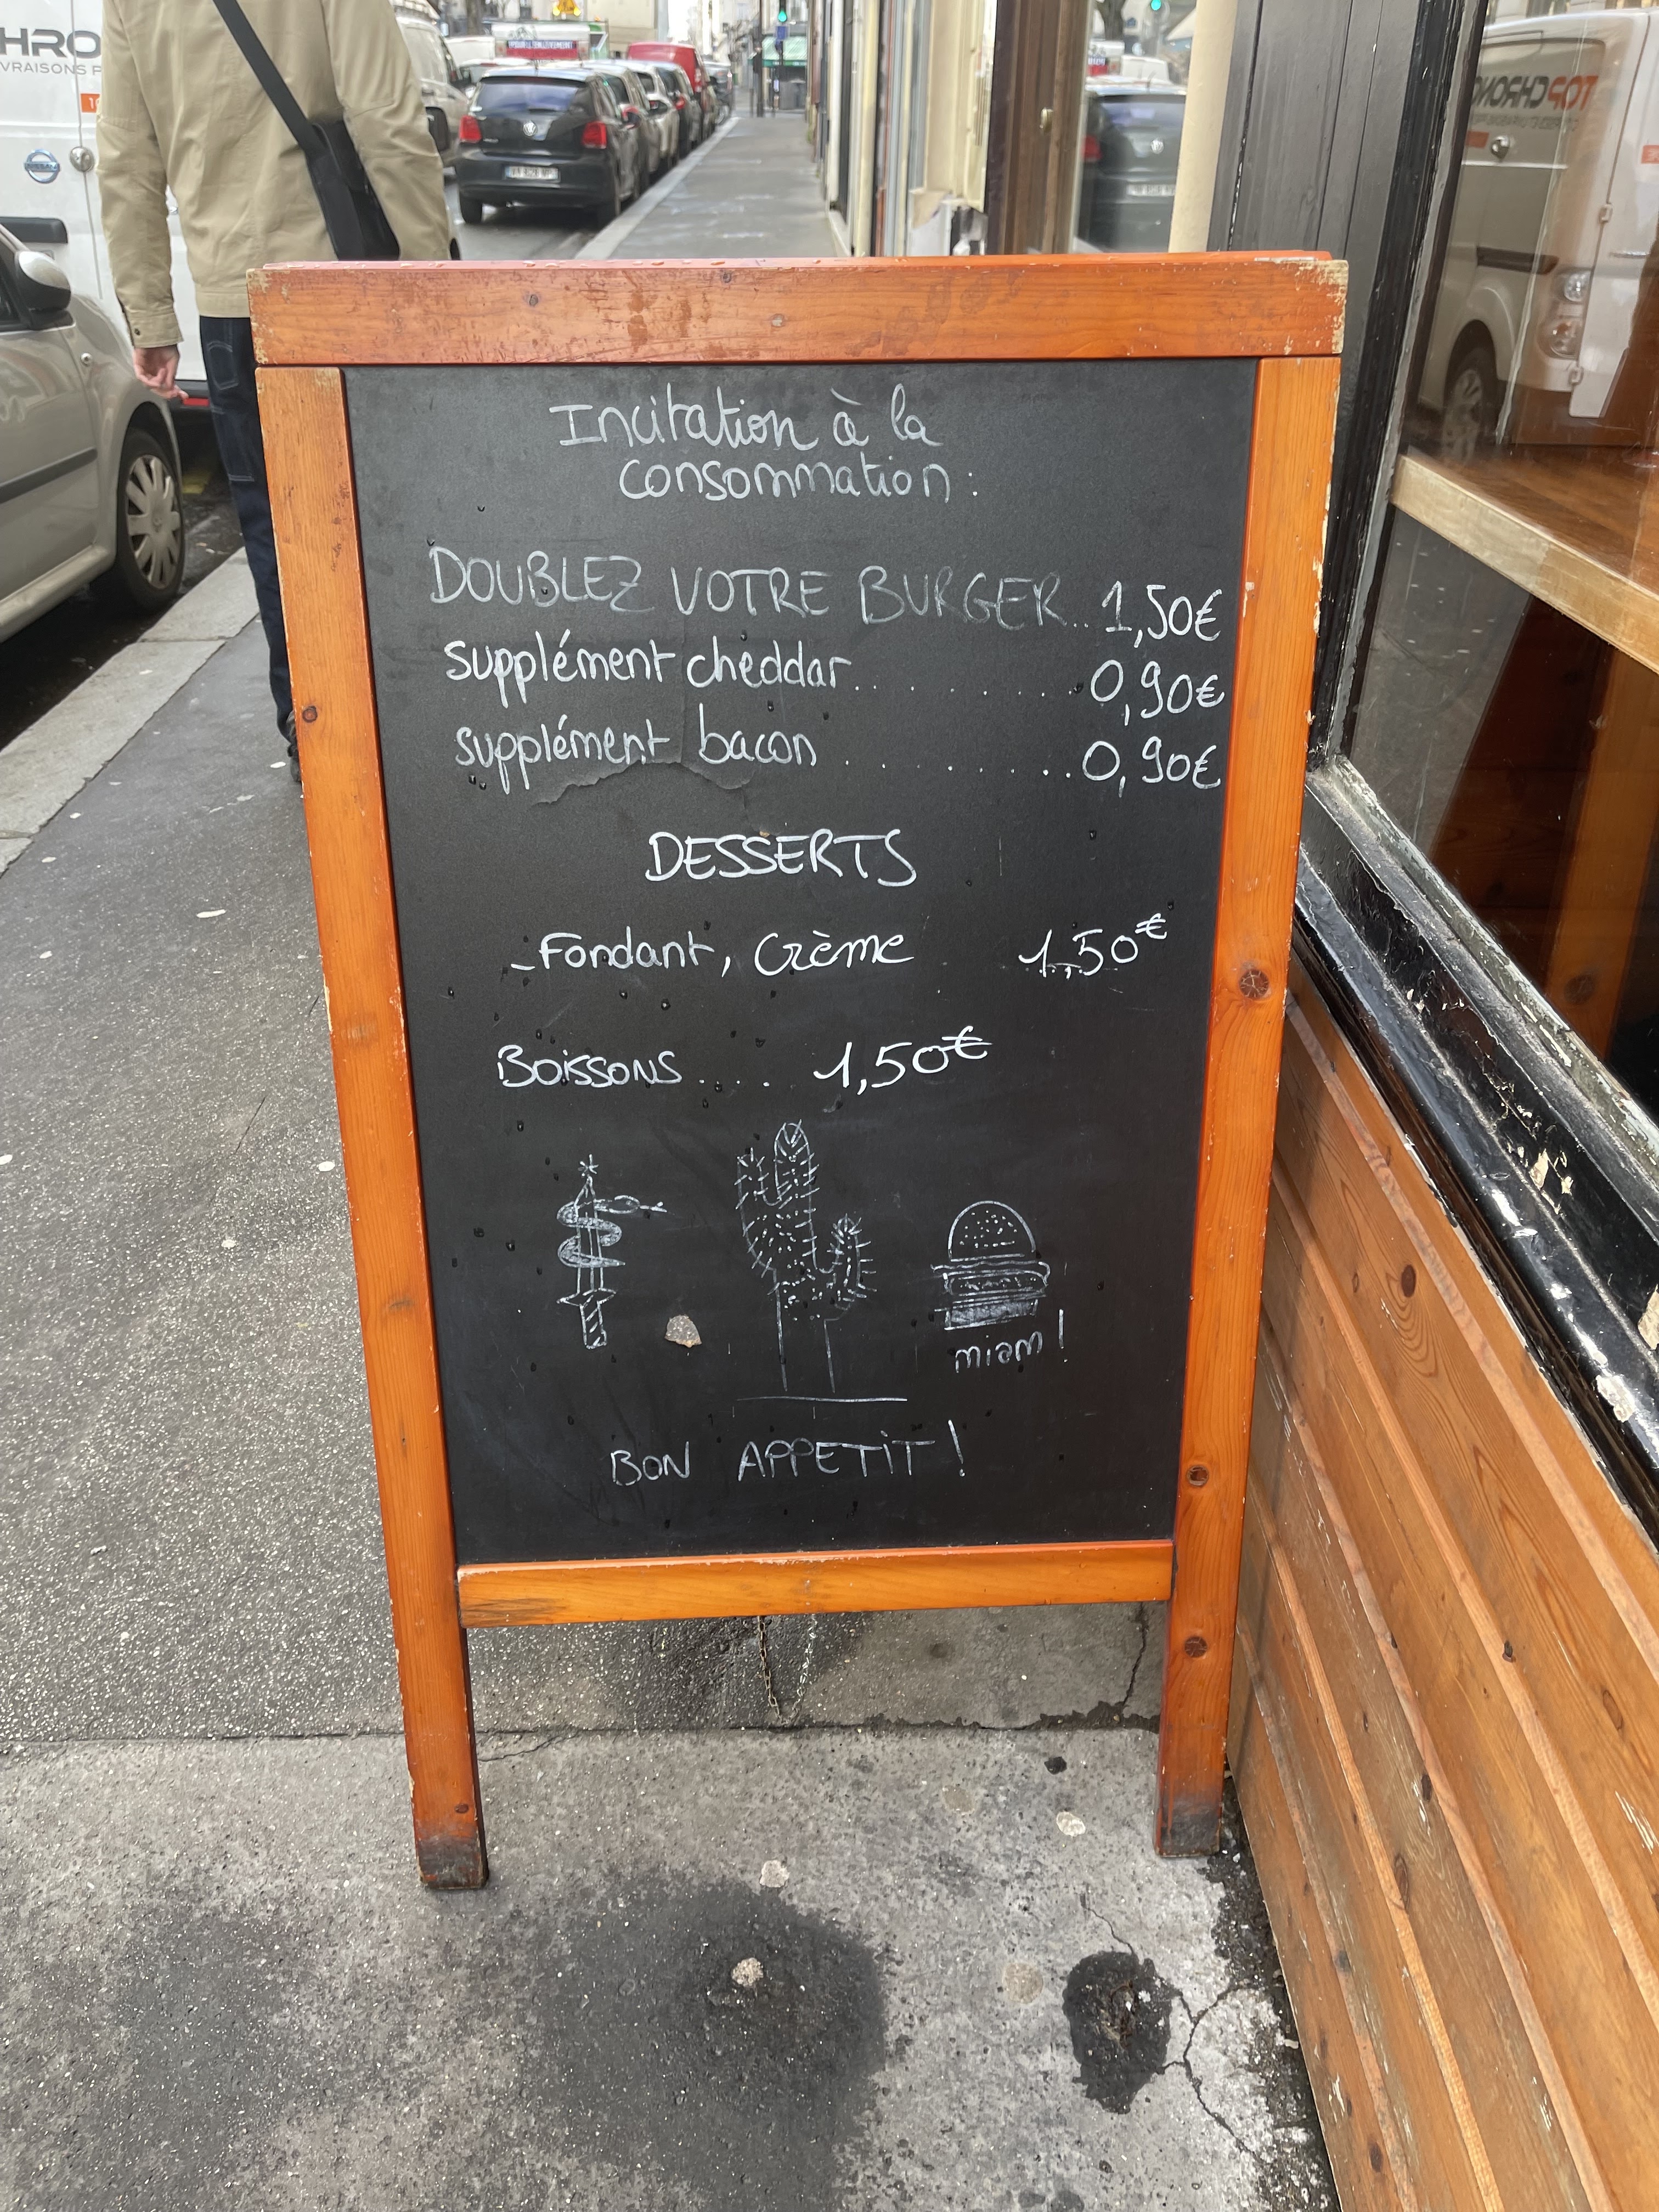 Incitation à la
consommation :
DOUBLEZ VOTRE BURGER.. 1,50€
supplément cheddar.......... 0,90€
supplément bacon ......... 0,90€
DESSERTS
- Fondant, Crème 1,50€
BOISSONS .... 1,50€
miam !
BON APPETIT !
HRO
VRAISONS
TOPCHRONO